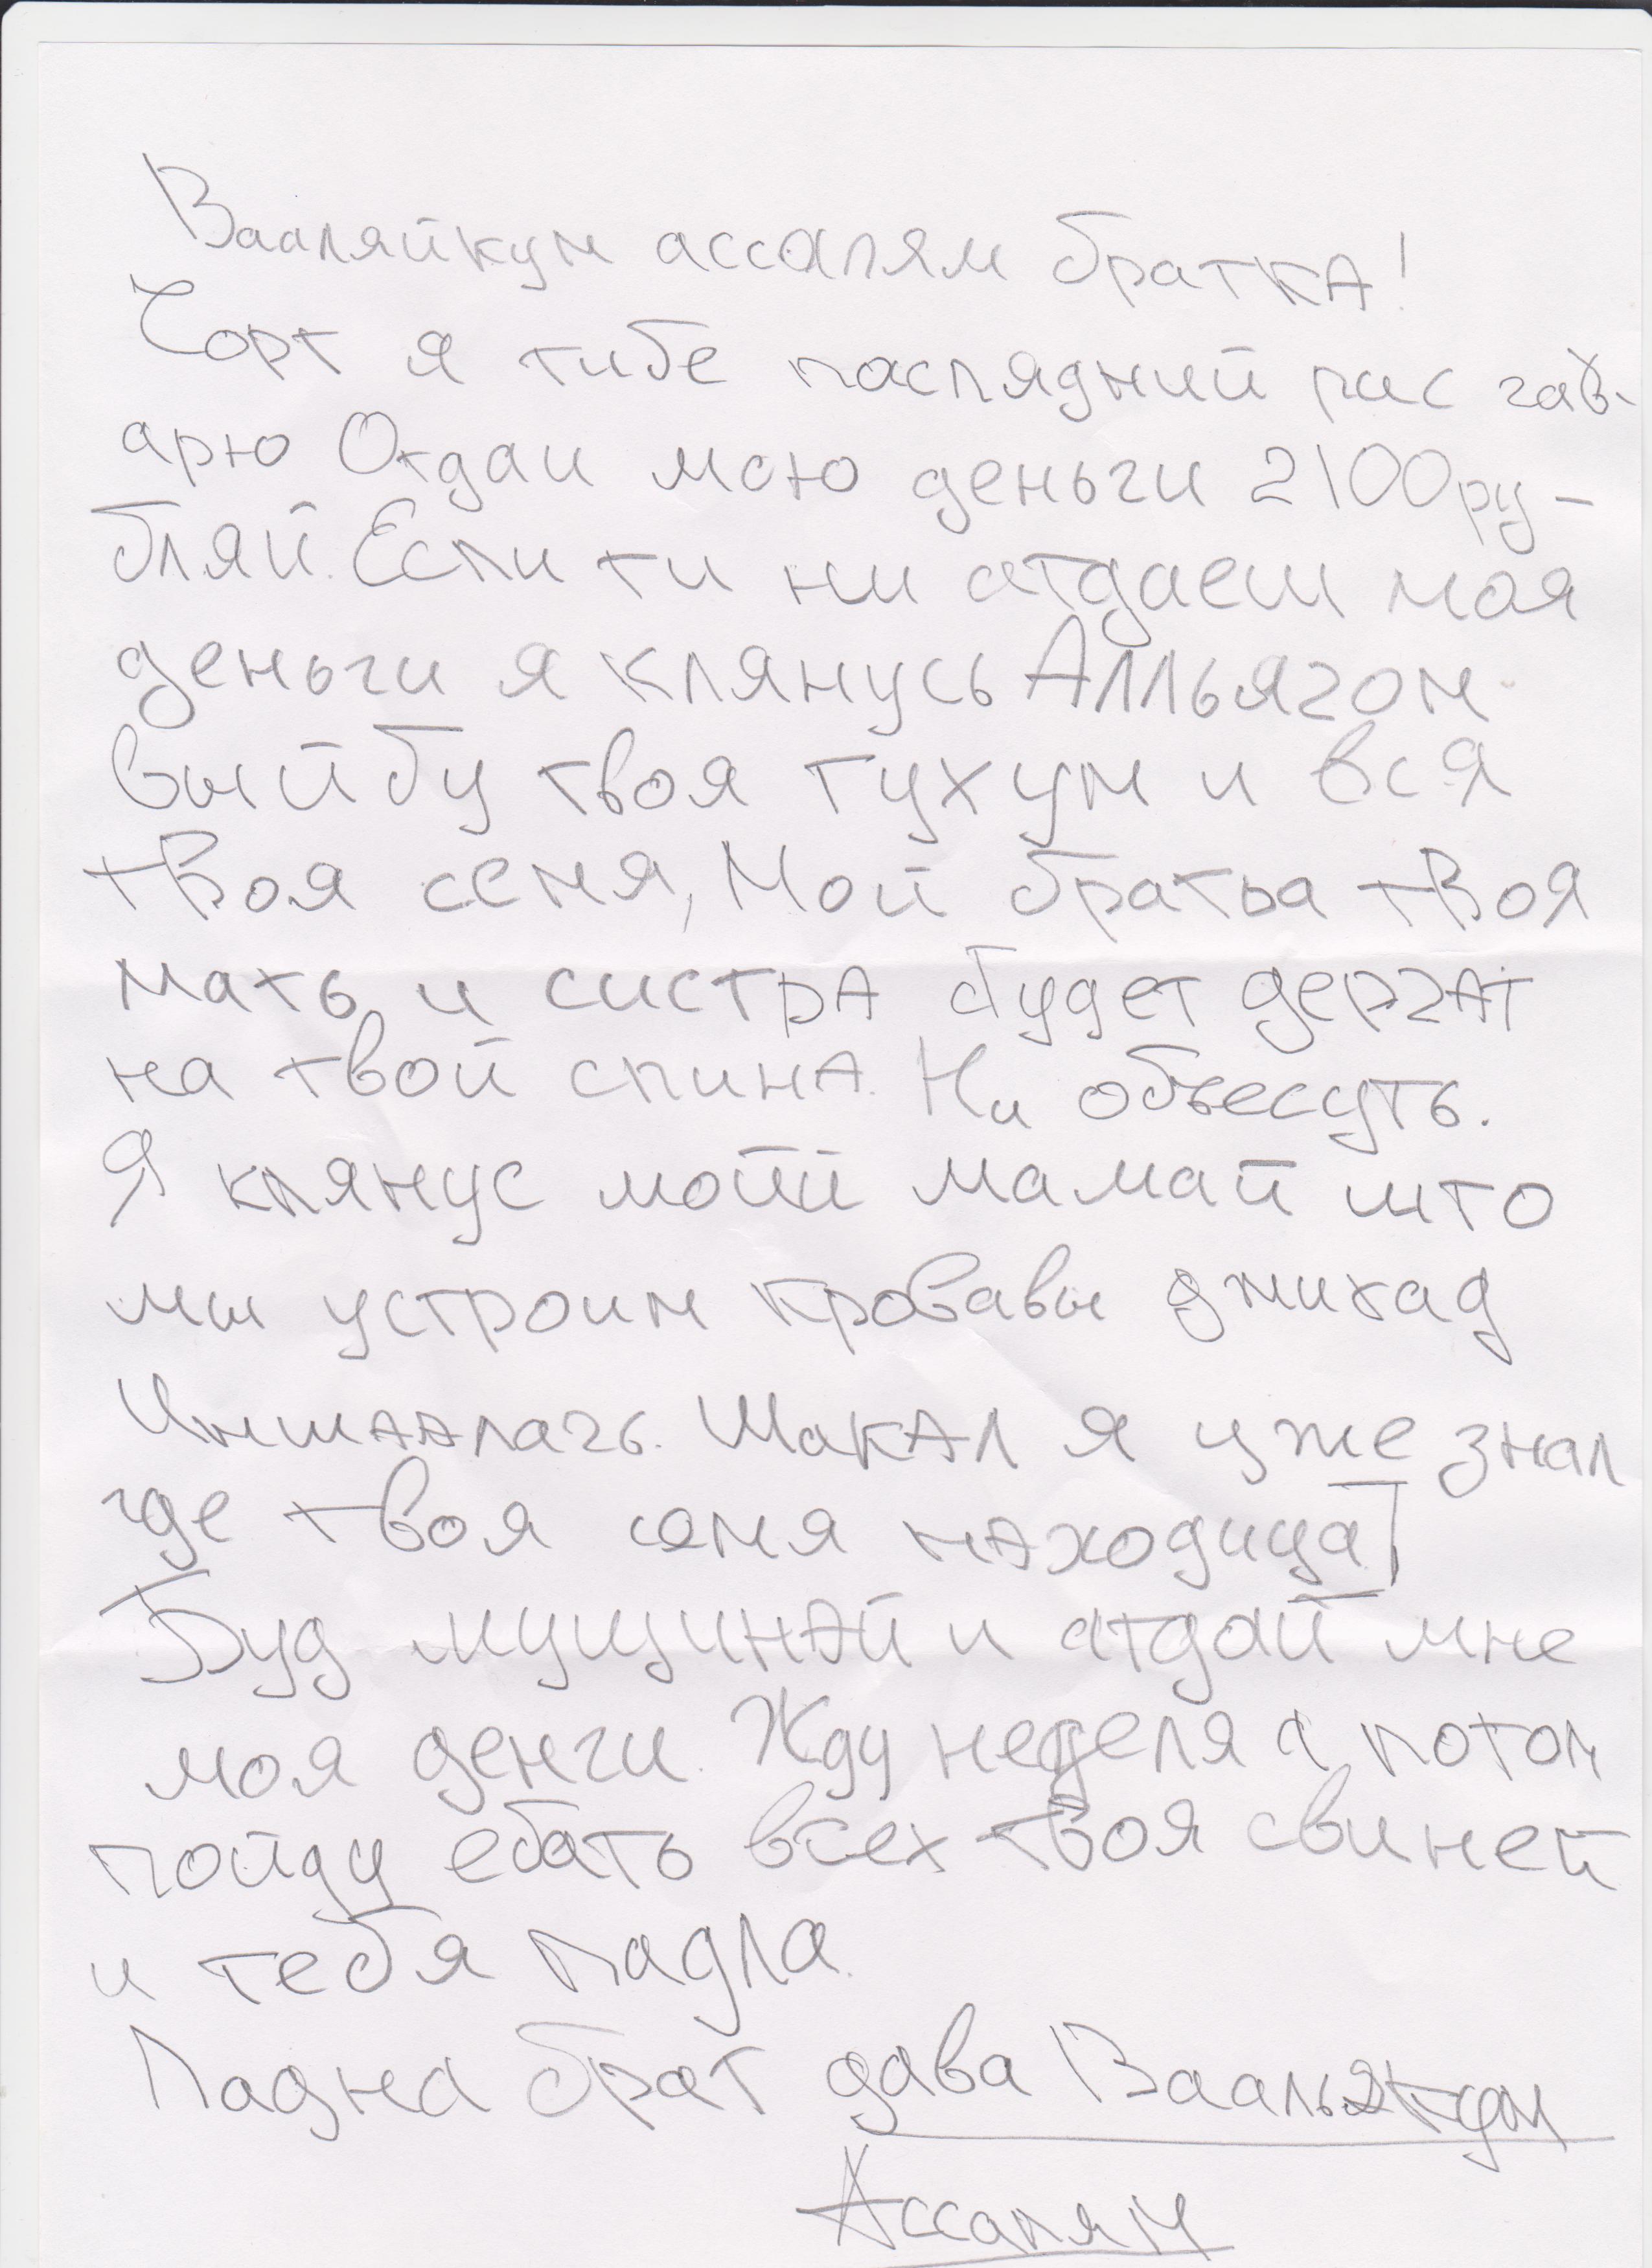 Вааляйкум ассалям братка!
Чорт я тибе паслядний рис гав-
арю Отдаи мою деньги 2100ру-
бляй. Если ти ни атдаеш моя
деньги я клянусь Алльягом
выйбу твоя тухум и вся
твоя семя, Мой братьа твоя
мать и систра будет дергат
на твой спина. Ни объесуть.
Я клянус мойй мамай што
мы устроим кровавы джихад
Иншаалагь. Шакал я уже знал
где твоя семя находица!
Буд мущинай и атдай мне
моя денги. Жду неделя а потом
пойду ебать всех твоя свиней
и тебя падла.
Ладна брат дава Ваальякум
Ассалям